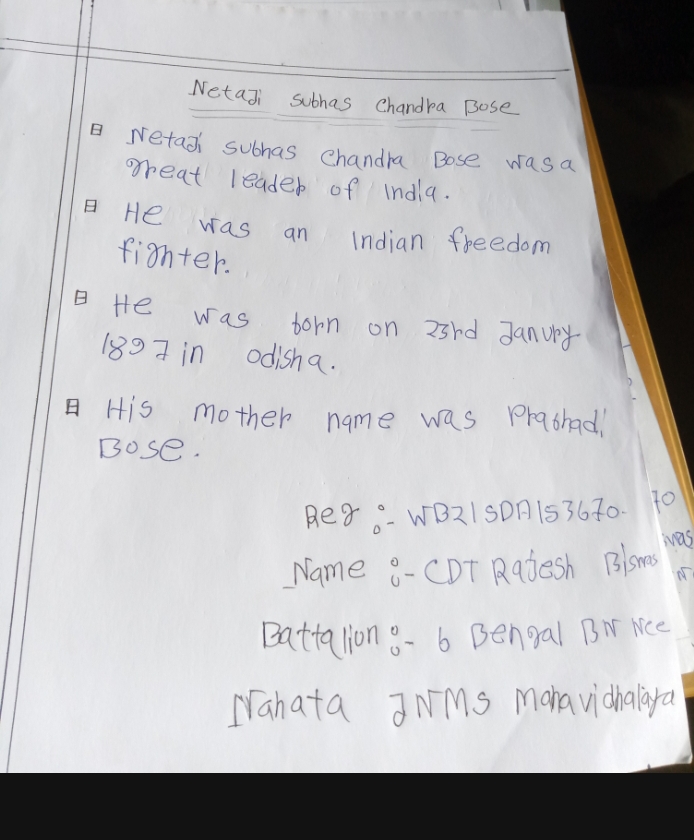 Netaji subhas Chandra Bose
Netaji subhas Chandra Bose was a
great leader of India.
He was an Indian freedom
fighter.
He was born on 23rd Janury
1897 in odisha.
His mother name was Prabhadi
Bose.
Reg :- WB21SDA153670-
Name :- CDT Rajesh Biswas
Battalion :- 6 Bengal BN Ncc
Nahata JNMS Mahavidhalaya
70
was